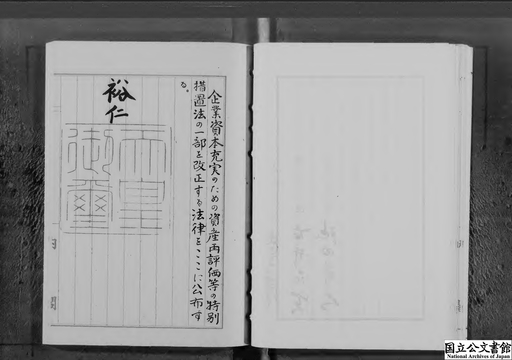 企業資本充実のための資産再評価等の特別
措置法の一部を改正する法律をここに公布す
る。
裕仁
天皇
御璽
国立公文書館
National Archives of Japan